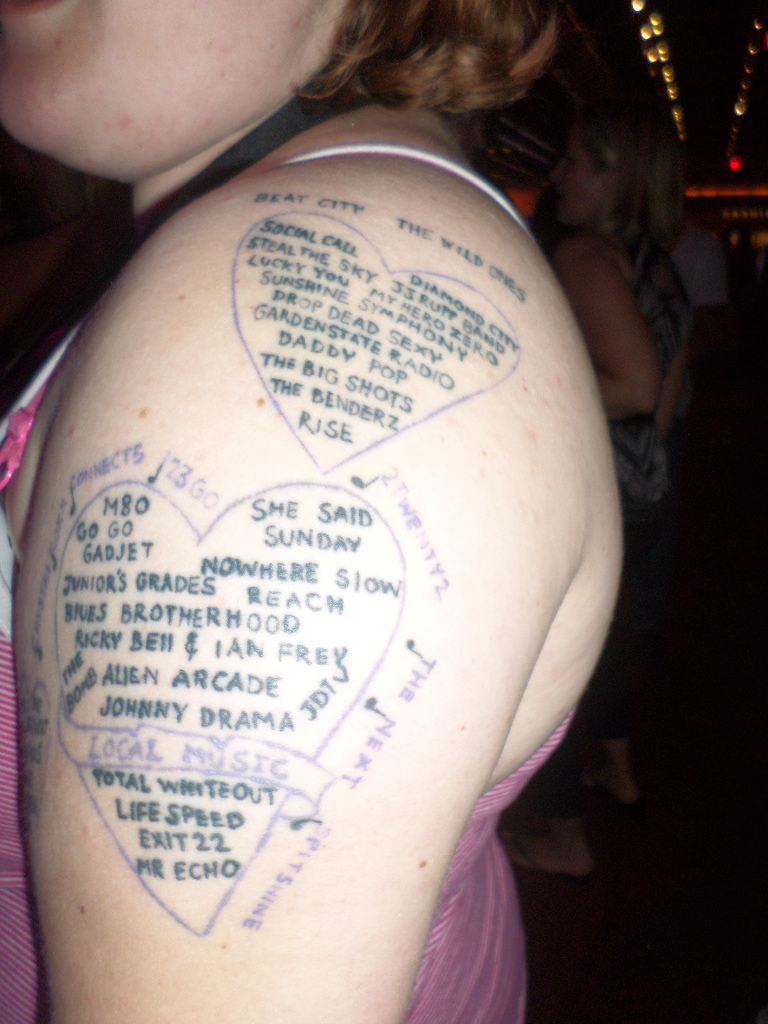 BEAT CITY
THE WILD ONES
SOCIAL CALL
DIAMOND CITY
STEAL THE SKY JJ RUFF BAND
LUCKY YOU MY HERO ZERO
SUNSHINE SYMPHONY
DROP DEAD SEXY
GARDENSTATE RADIO
DADDY POP
THE BIG SHOTS
THE BENDERZ
RISE
CONNECTS
123 GO
2TWENTY2
M80
GO GO
GADJET
SHE SAID
SUNDAY
NOWHERE SLOW
JUNIOR'S GRADES
REACH
BLUES BROTHERHOOD
RICKY BELL & IAN FREY
THE
BOMB
ALIEN ARCADE
JDTV
JOHNNY DRAMA
THE NEXT
LOCAL MUSIC
TOTAL WHITEOUT
LIFESPEED
EXIT 22
MR ECHO
SPITSHINE